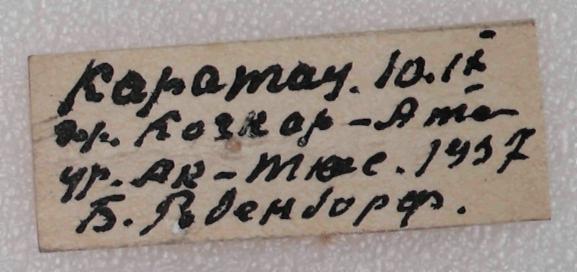 Каратау. 10.IX
хр. Кочкар-Ата
ур. Ак-Тюс. 1937
Б. Родендорф.